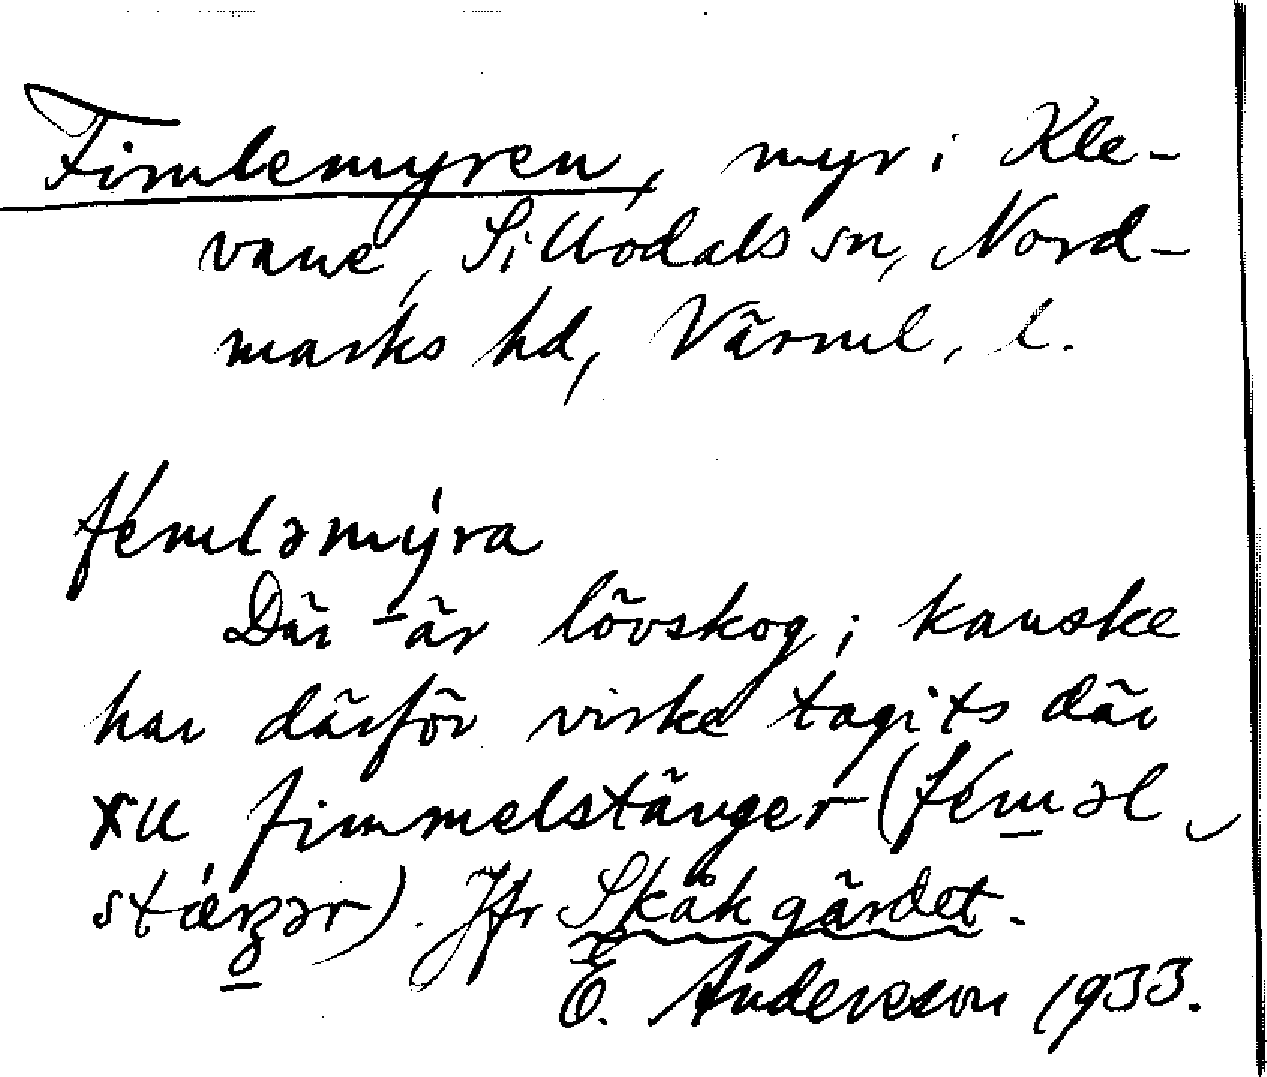 Fimlemyren, myr i Kle-
vane, Sillbodals sn, Nord-
marks hd, Värml. l.
fémləmýra
Där är lövskog; kanske
har därför virke tagits där
till fimmelstänger (féməl
stǽŋər). Jfr Skåkgärdet.
E. Andersson 1933.